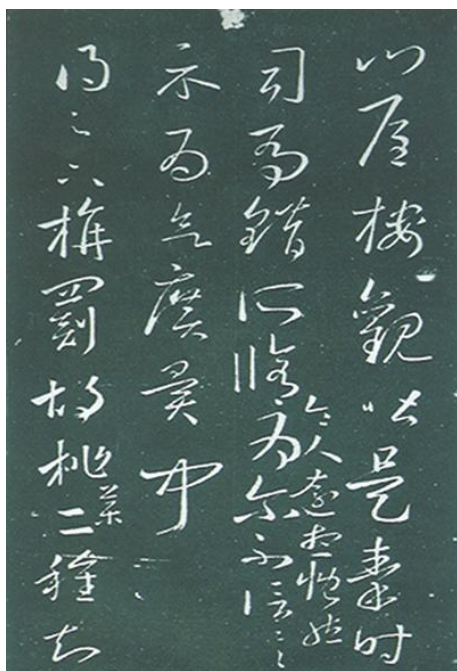 門屋樓觀皆是秦時
司馬錯所脩令人遠想慨然為尔不信一一
示為欲廣異聞
得足下旃罽胡桃藥二種知